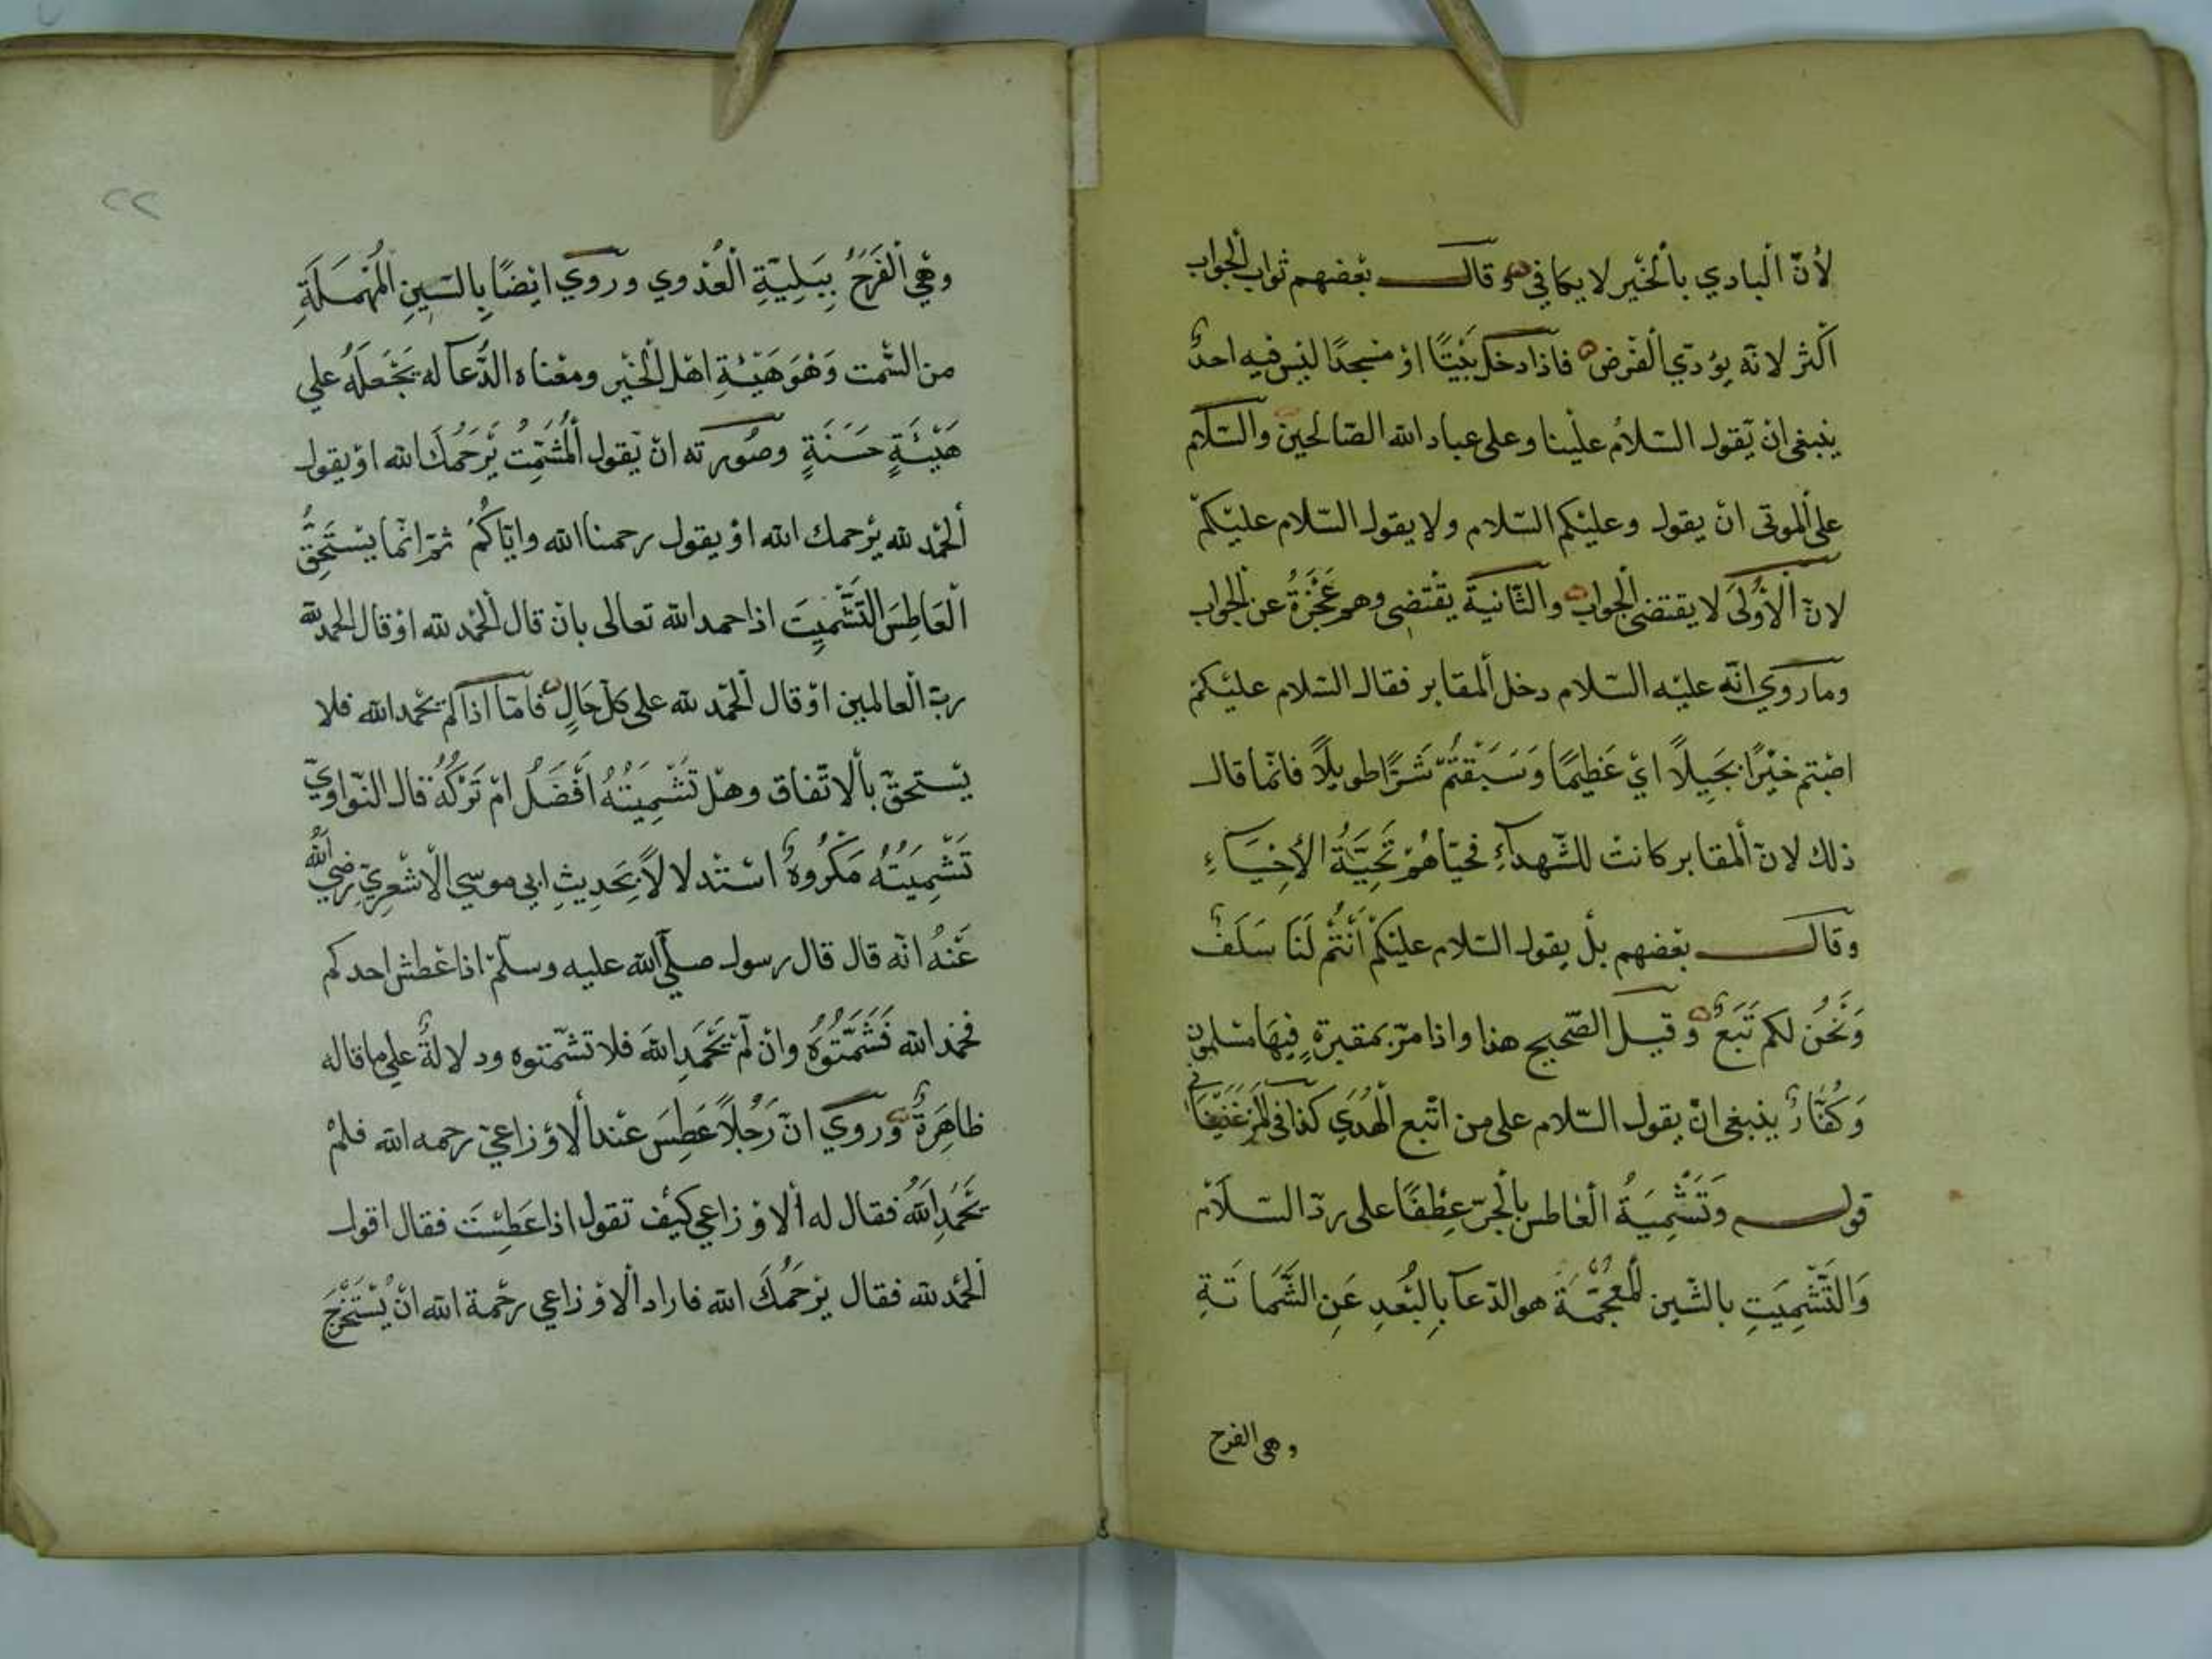 لأنّ البادي بالخير لا يكافي وقال بعضهم ثواب الجواب
اكثر لانه يؤدّي الفرض فاذا دخل بيتًا او مسجدًا ليس فيه احدٌ
ينبغي ان يقول السّلام علينا وعلى عباد الله الصّالحين والسّلام
على الموتى ان يقول وعليكم السّلام ولا يقول السّلام عليكم
لانّ الاولى لا يقتضى الجواب والثّانية يقتضى وهم عَجَزَةٌ عن الجواب
وما روي انّه عليه السّلام دخل المقابر فقال السّلام عليكم
اصبتم خيرًا بجيلًا اي عَظيمًا وَسَبَقتُمْ شَرًّا طويلًا فانّما قال
ذلك لانّ المقابر كانت للشّهدآء فحيّاهُمْ تَحِيَّةَ الأحْيَآءِ
وقال بعضهم بل يقول السّلام عليكم أَنْتُمْ لَنَا سَلَفٌ
وَنَحْنُ لكم تَبَعٌ وقيل الصّحيح هذا واذا مرّ بمقبرةٍ فِيهَا مسلمون
وَكُفّارٌ ينبغى ان يقول السّلام على من اتّبع الهُدَي كذا فى
قوله وَتَشْمِيَةُ العَاطس بالجرّ عطفًا على ردّ السّلام
وَالتَّشْمِيَتِ بالشّين المُعجَمَة هو الدّعآ بِالبُعدِ عَنِ الشَّمَاتَةِ
وهى الفرح
٢٢
وهي الْفَرَحُ بِبَلِيّةِ الْعُدوي وروي ايضًا بِالسّينِ المُهمَلَةِ
من السّمت وَهُوَ هَيْئَةِ اهل الخير ومعناه الدُّعآ له يَجْعَلَهُ علي
هَيْئَةٍ حَسَنَةٍ وصورته ان يقول المُشَمِّتُ يَرْحَمُكَ الله او يقول
الحمد لله يرحمك الله او يقول رحمنا الله وايّاكُمْ ثم انّما يَسْتَحِقُّ
الْعَاطِسَ التَّشْمِيتَ اذا حمد الله تعالى بان قال الحمد لله او قال الحمد لله
ربّ العالمين او قال الحمد لله على كلّ حَالٍ فَامّا اذا لم يحمد الله فلا
يستحقّ بالاتّفاق وهل تَشْمِيَتُهُ اَفْضَلُ ام تَرْكُهُ قال النّواويّ
تَشْمِيَتُهُ مَكْرُوهٌ استدلالًا بِحَدِيثِ ابي موسي الاشعريّ رضي اللهُ
عَنْهُ انّه قال قال رسول صلّي الله عليه وسلّم اذا عَطش احدكم
فحمد الله فَشَمِّتُوهُ وان لَمْ يَحْمَدِ اللهَ فلا تشمّتوه ودلالةُ علي ما قاله
ظاهِرَةٌ وروي انّ رَجُلًا عَطِسَ عند الاوزاعيّ رحمه الله فلم
يَحْمَدِ اللهَ فقال له الاوزاعي كيف تقول اذا عَطِسْتَ فقال اقول
الحمد لله فقال يَرْحَمُكَ الله فاراد الاوزاعي رحمة الله ان يَسْتَخْرِجَ